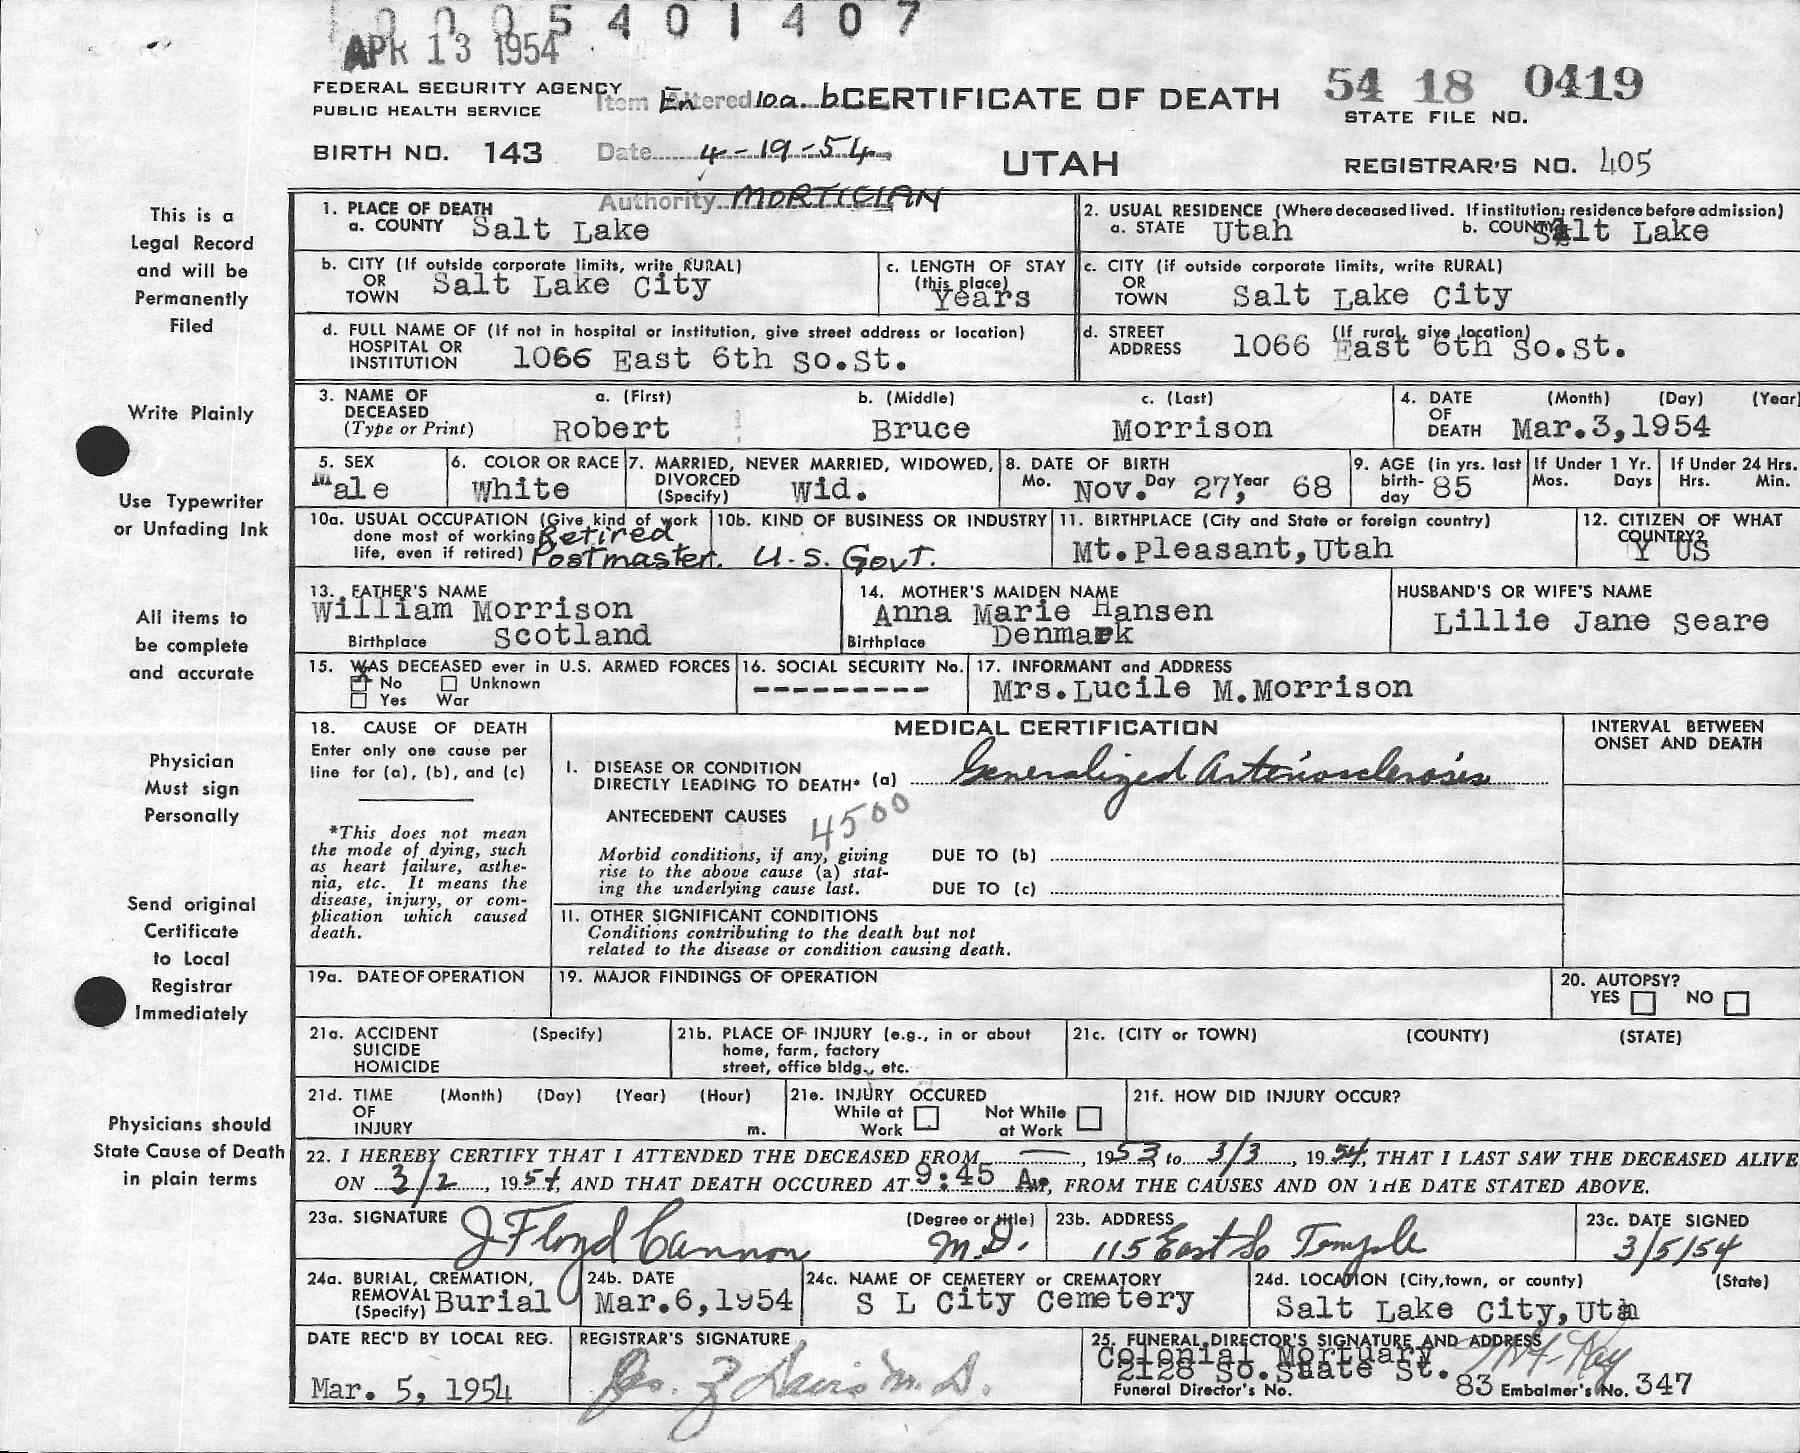 1 0 0 0 5 4 0 1 4 0 7
APR 13 1954
FEDERAL SECURITY AGENCY
PUBLIC HEALTH SERVICE
Item Entered 10a. b
CERTIFICATE OF DEATH
54 18 0419
STATE FILE NO.
BIRTH NO. 143
Date 4-19-54
UTAH
REGISTRAR'S NO. 405
Authority MORTICIAN
This is a
Legal Record
and will be
Permanently
Filed
Write Plainly
Use Typewriter
or Unfading Ink
All items to
be complete
and accurate
Physician
Must sign
Personally
Send original
Certificate
to Local
Registrar
Immediately
Physicians should
State Cause of Death
in plain terms
1. PLACE OF DEATH
a. COUNTY Salt Lake
2. USUAL RESIDENCE (Where deceased lived. If institution: residence before admission)
a. STATE Utah b. COUNTY Salt Lake
b. CITY (If outside corporate limits, write RURAL)
OR
TOWN Salt Lake City
c. LENGTH OF STAY
(this place)
Years
c. CITY (if outside corporate limits, write RURAL)
OR
TOWN Salt Lake City
d. FULL NAME OF (If not in hospital or institution, give street address or location)
HOSPITAL OR
INSTITUTION 1066 East 6th So.St.
d. STREET (If rural, give location)
ADDRESS 1066 East 6th So.St.
3. NAME OF
DECEASED
(Type or Print)
a. (First) b. (Middle) c. (Last)
Robert Bruce Morrison
4. DATE (Month) (Day) (Year)
OF
DEATH Mar.3,1954
5. SEX
Male
6. COLOR OR RACE
White
7. MARRIED, NEVER MARRIED, WIDOWED,
DIVORCED
(Specify) Wid.
8. DATE OF BIRTH
Mo. Day Year
Nov. 27, 68
9. AGE (in yrs. last
birth-
day 85
If Under 1 Yr.
Mos. Days
If Under 24 Hrs.
Hrs. Min.
10a. USUAL OCCUPATION (Give kind of work
done most of working
life, even if retired)
Retired
Postmaster.
10b. KIND OF BUSINESS OR INDUSTRY
U.S. Govt.
11. BIRTHPLACE (City and State or foreign country)
Mt.Pleasant,Utah
12. CITIZEN OF WHAT
COUNTRY?
Y US
13. FATHER'S NAME
William Morrison
Birthplace Scotland
14. MOTHER'S MAIDEN NAME
Anna Marie Hansen
Birthplace Denmark
HUSBAND'S OR WIFE'S NAME
Lillie Jane Seare
15. WAS DECEASED ever in U.S. ARMED FORCES
X No Unknown
Yes War
16. SOCIAL SECURITY No.
---------
17. INFORMANT and ADDRESS
Mrs.Lucile M.Morrison
18. CAUSE OF DEATH
Enter only one cause per
line for (a), (b), and (c)
*This does not mean
the mode of dying, such
as heart failure, asthe-
nia, etc. It means the
disease, injury, or com-
plication which caused
death.
MEDICAL CERTIFICATION
INTERVAL BETWEEN
ONSET AND DEATH
I. DISEASE OR CONDITION
DIRECTLY LEADING TO DEATH* (a) Generalized Arteriosclerosis
ANTECEDENT CAUSES 4500
Morbid conditions, if any, giving
rise to the above cause (a) stat-
ing the underlying cause last.
DUE TO (b)
DUE TO (c)
II. OTHER SIGNIFICANT CONDITIONS
Conditions contributing to the death but not
related to the disease or condition causing death.
19a. DATE OF OPERATION
19. MAJOR FINDINGS OF OPERATION
20. AUTOPSY?
YES NO
21a. ACCIDENT (Specify)
SUICIDE
HOMICIDE
21b. PLACE OF INJURY (e.g., in or about
home, farm, factory
street, office bldg., etc.
21c. (CITY or TOWN) (COUNTY) (STATE)
21d. TIME (Month) (Day) (Year) (Hour)
OF
INJURY m.
21e. INJURY OCCURED
While at Work
Not While at Work
21f. HOW DID INJURY OCCUR?
22. I HEREBY CERTIFY THAT I ATTENDED THE DECEASED FROM — , 1953 to 3/3, 1954, THAT I LAST SAW THE DECEASED ALIVE
ON 3/2, 1954, AND THAT DEATH OCCURED AT 9:45 A.M., FROM THE CAUSES AND ON THE DATE STATED ABOVE.
23a. SIGNATURE (Degree or title)
J Floyd Cannon M.D.
23b. ADDRESS
115 East So Temple
23c. DATE SIGNED
3/5/54
24a. BURIAL, CREMATION,
REMOVAL
(Specify) Burial
24b. DATE
Mar.6,1954
24c. NAME OF CEMETERY or CREMATORY
S L City Cemetery
24d. LOCATION (City,town, or county) (State)
Salt Lake City,Utah
DATE REC'D BY LOCAL REG.
Mar. 5, 1954
REGISTRAR'S SIGNATURE
Davis M.D.
25. FUNERAL DIRECTOR'S SIGNATURE AND ADDRESS
Colonial Mortuary
2128 So.State St.
Funeral Director's No. 83 Embalmer's No. 347